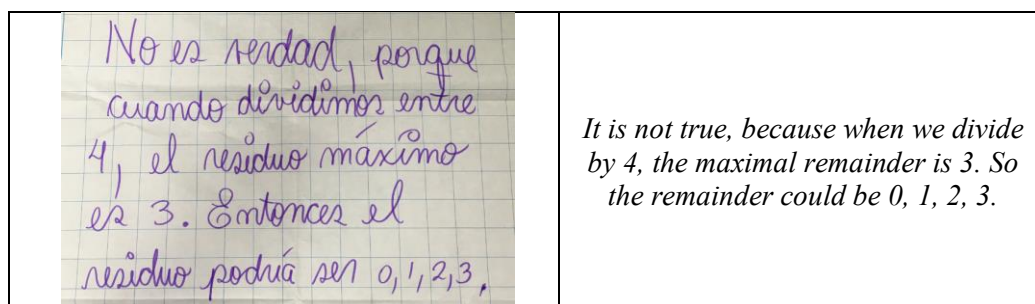 No es verdad, porque
cuando dividimos entre
4, el residuo máximo
es 3. Entonces el
residuo podría ser 0,1,2,3.
It is not true, because when we divide
by 4, the maximal remainder is 3. So
the remainder could be 0, 1, 2, 3.